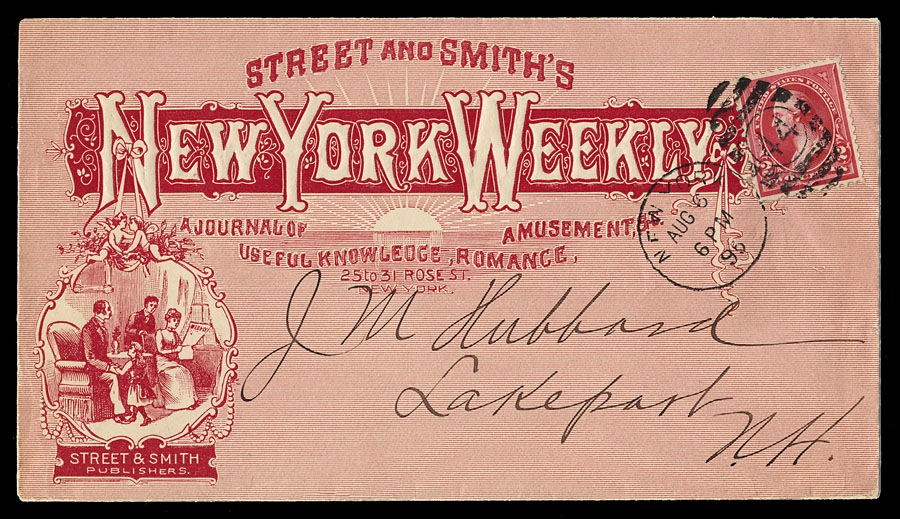 STREET AND SMITH'S
NEW YORK WEEKLY,
A JOURNAL OF
USEFUL KNOWLEDGE, ROMANCE,
AMUSEMENT, &c
25 to 31 ROSE ST.
NEW YORK.
UNITED STATES POSTAGE
NEW YORK
AUG 6
6 PM
96
J M Hubbard
Lakeport
N.H.
WEEKLY
STREET & SMITH
PUBLISHERS.